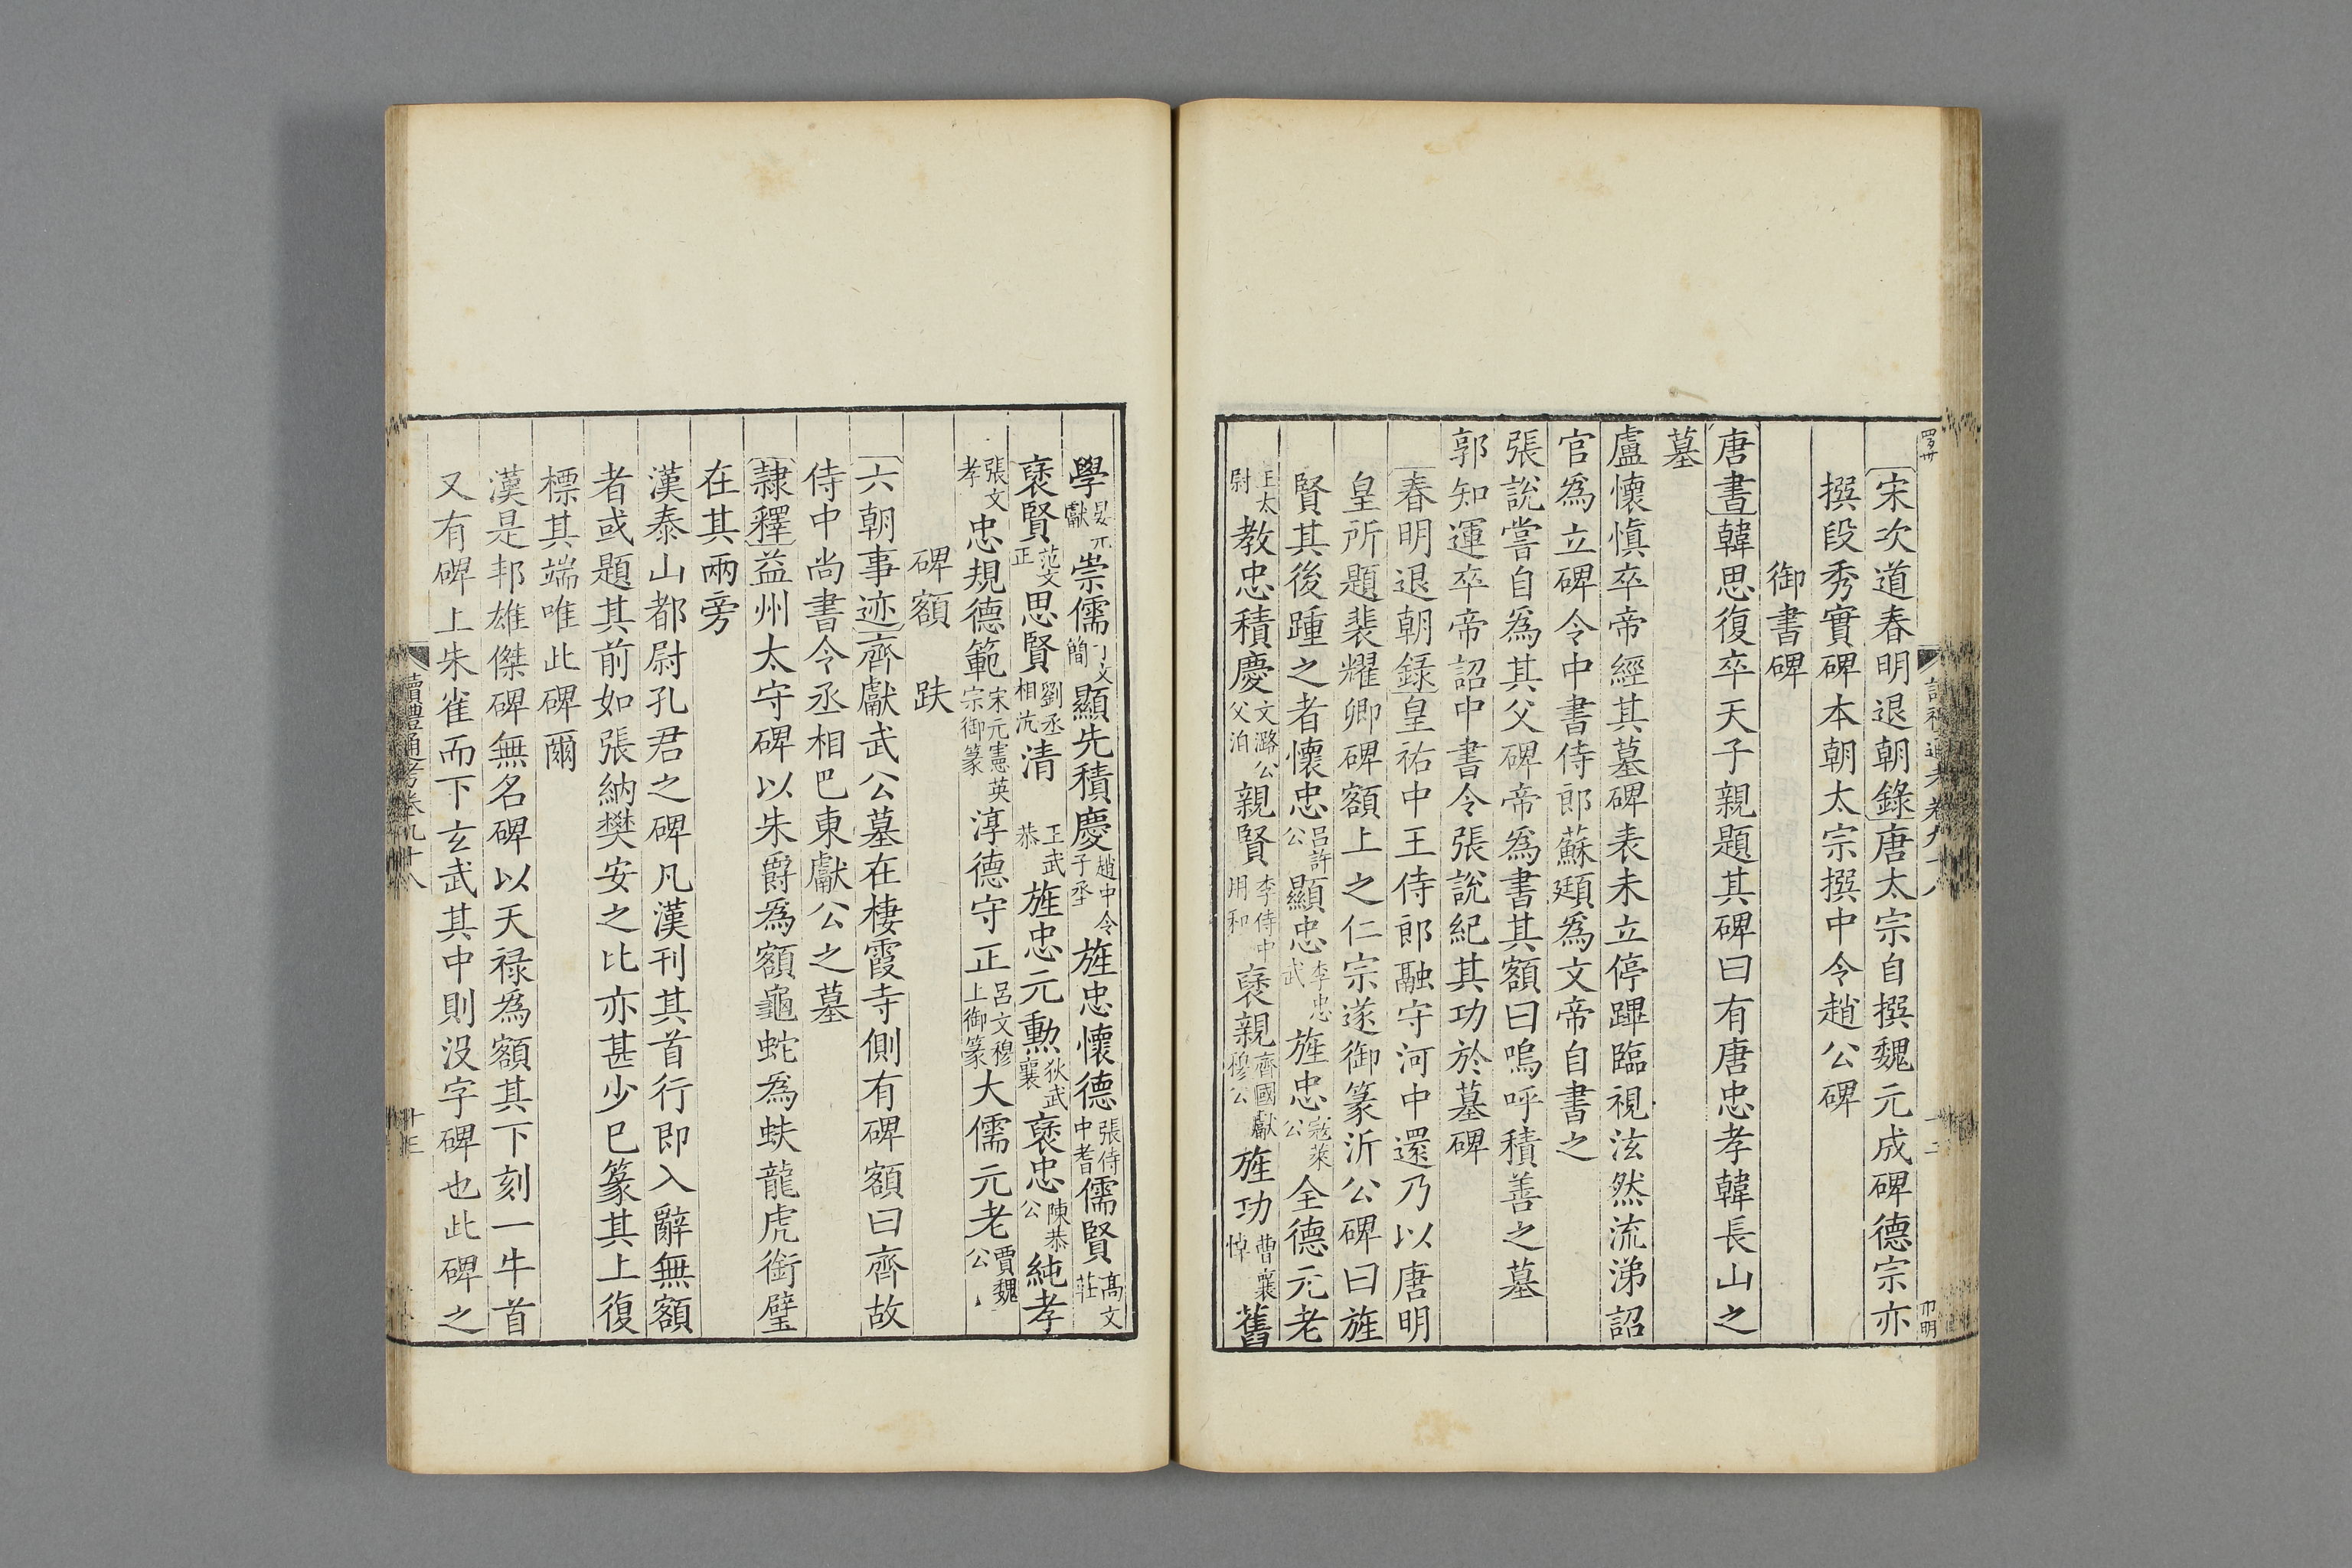 宋次道春明退朝錄唐太宗自撰魏元成碑德宗亦
撰段秀實碑本朝太宗撰中令趙公碑
御書碑
唐書韓思復卒天子親題其碑曰有唐忠孝韓長山之
墓
盧懷慎卒帝經其墓碑表未立停蹕臨視泫然流涕詔
官爲立碑令中書侍郎蘇頲爲文帝自書之
張說嘗自爲其父碑帝爲書其額曰嗚呼積善之墓
郭知運卒帝詔中書令張說紀其功於墓碑
春明退朝錄皇祐中王侍郎融守河中還乃以唐明
皇所題裴耀卿碑額上之仁宗遂御篆沂公碑曰旌
賢其後踵之者懷忠呂許公顯忠李忠武旌忠寇萊公全德元老
王太尉教忠積慶文潞公父洎親賢李侍中用和褒親齊國獻穆公旌功曹襄悼舊
學晏元獻崇儒丁文簡顯先積慶趙中令子丞旌忠懷德張侍中耆儒賢高文莊
褒賢范文正思賢劉丞相沆清 王武恭旌忠元勳狄武襄褒忠陳恭公純孝
張文孝忠規德範宋元憲英宗御篆淳德守正呂文穆上御篆大儒元老賈魏公
碑額 趺
六朝事迹齊獻武公墓在棲霞寺側有碑額曰齊故
侍中尚書令丞相巴東獻公之墓
隸釋益州太守碑以朱爵爲額龜蛇爲趺龍虎銜璧
在其兩旁
漢泰山都尉孔君之碑凡漢刊其首行即入辭無額
者或題其前如張納樊安之比亦甚少巳篆其上復
標其端唯此碑爾
漢是邦雄傑碑無名碑以天祿爲額其下刻一牛首
又有碑上朱雀而下玄武其中則没字碑也此碑之
讀禮通考卷九十八
十三